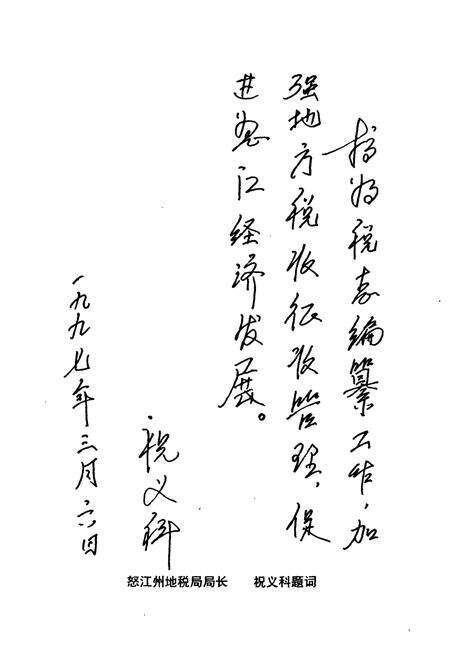 搞好税志编纂工作，加
强地方税收征收管理，促
进怒江经济发展。
祝义科
一九九七年三月六日
怒江州地税局局长　祝义科题词